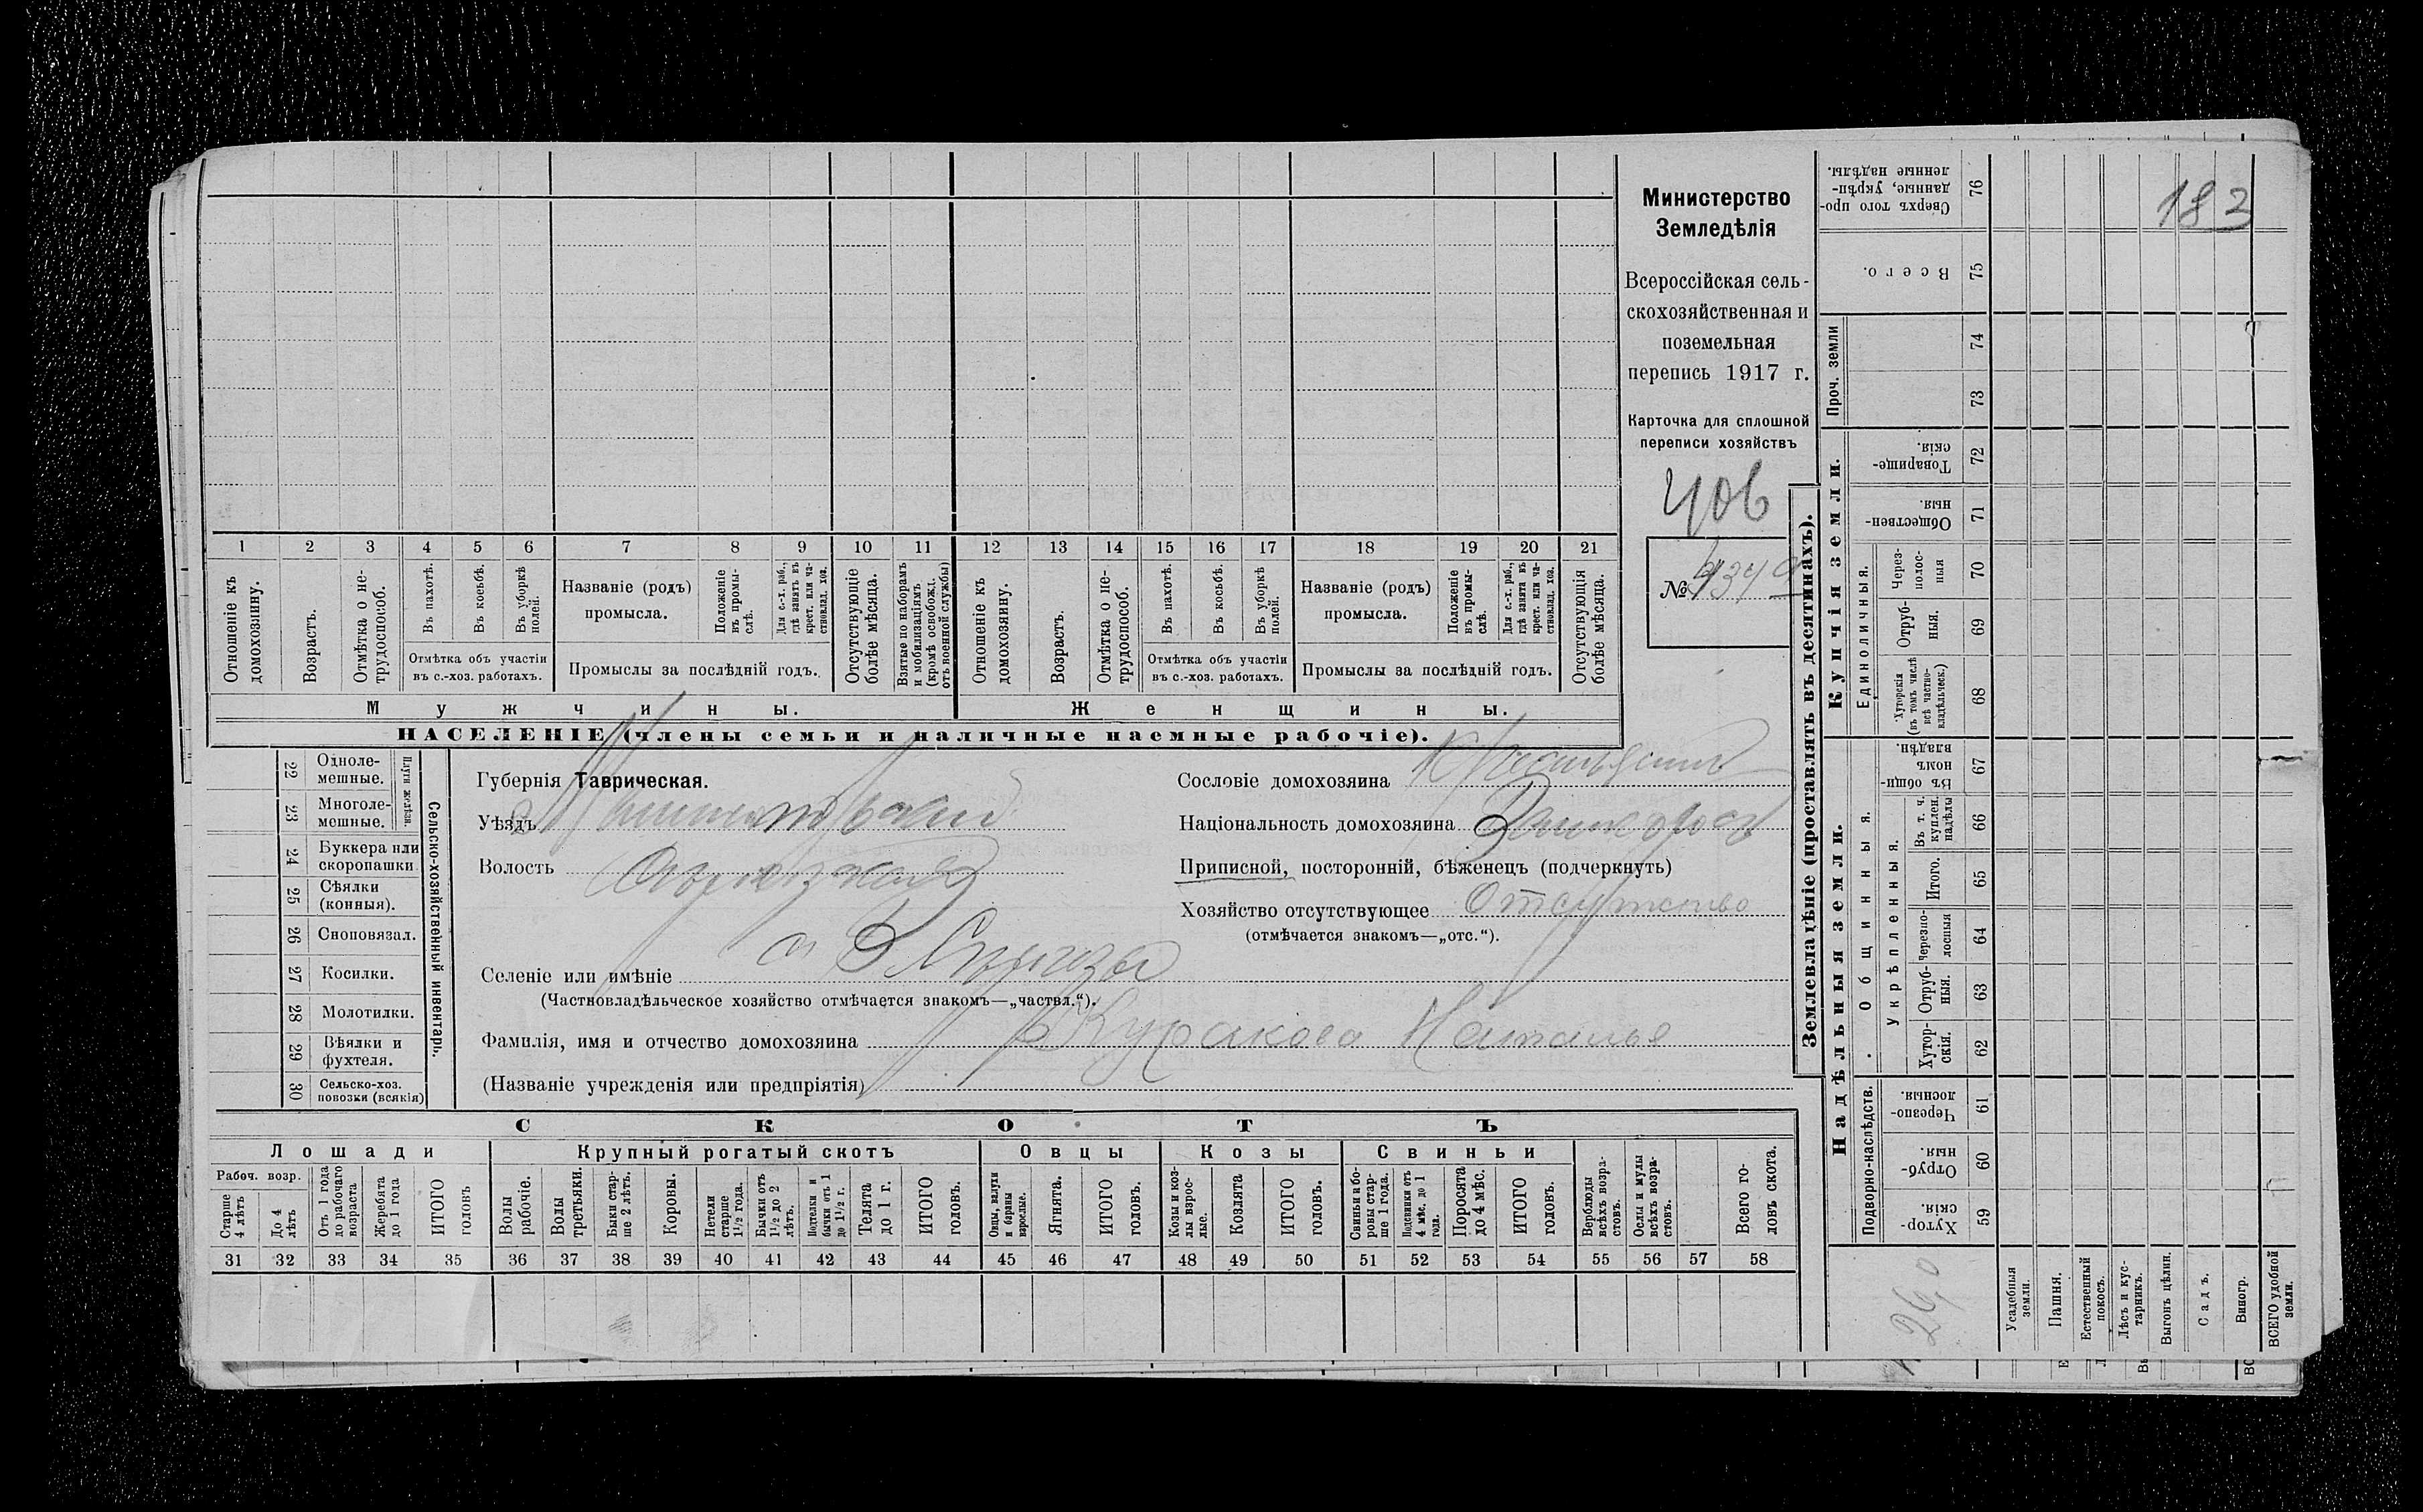 Министерство
Земледѣлія
Всероссійская сель-
скохозяйственная и
поземельная
перепись 1917 г.
Карточка для сплошной
переписи хозяйствъ
406
№
183
1 2 3 4 5 6 7 8 9 10 11 12 13 14 15 16 17 18 19 20 21
Отношеніе къ домохозяину.
Возрастъ.
Отмѣтка о не-трудоспособ.
Въ пахотѣ.
Въ косьбѣ.
Въ уборкѣ полей.
Отмѣтка объ участіи
въ с.-хоз. работахъ.
Названіе (родъ)
промысла.
Положеніе въ промы-слѣ.
Для с.-х. раб., гдѣ занятъ въ крест. или ча-ствовлад. хоз.
Промыслы за послѣдній годъ.
Отсутствующіе болѣе мѣсяца.
Взятые по наборамъ и мобилизаціямъ (кромѣ освобожд. отъ военной службы)
Отношеніе къ домохозяину.
Возрастъ.
Отмѣтка о не-трудоспособ.
Въ пахотѣ.
Въ косьбѣ.
Въ уборкѣ полей.
Отмѣтка объ участіи
въ с.-хоз. работахъ.
Названіе (родъ)
промысла.
Положеніе въ промы-слѣ.
Для с.-х. раб., гдѣ занята въ крест. или ча-ствовлад. хоз.
Промыслы за послѣдній годъ.
Отсутствующія болѣе мѣсяца.
Мужчины.
Женщины.
НАСЕЛЕНІЕ (члены семьи и наличные наемные рабочіе).
22 Одноле-мешные.
23 Многоле-мешные.
Плуги желѣзн.
24 Буккера или скоропашки
25 Сѣялки (конныя).
26 Сноповязал.
27 Косилки.
28 Молотилки.
29 Вѣялки и фухтеля.
30 Сельско-хоз. повозки (всякія)
Сельско-хозяйственный инвентарь.
Губернія Таврическая.
Уѣздъ
Волость
Селеніе или имѣніе
(Частновладѣльческое хозяйство отмѣчается знакомъ—„частвл.“).
Фамилія, имя и отчество домохозяина Куракова Наталья
(Названіе учрежденія или предпріятія)
Сословіе домохозяина
Національность домохозяина
Приписной, посторонній, бѣженецъ (подчеркнуть)
Хозяйство отсутствующее Отсутство
(отмѣчается знакомъ—„отс.“).
СКОТЪ
Лошади
Крупный рогатый скотъ
Овцы
Козы
Свиньи
Рабоч. возр.
Старше 4 лѣтъ
До 4 лѣтъ
Отъ 1 года до рабочаго возраста
Жеребята до 1 года
ИТОГО головъ
Волы рабочіе.
Волы третьяки.
Быки стар-ше 2 лѣтъ.
Коровы.
Нетели старше 1½ года.
Бычки отъ 1½ до 2 лѣтъ.
Подтелки и бычки отъ 1 до 1½ г.
Телята до 1 г.
ИТОГО головъ.
Овцы, валухи и бараны взрослые.
Ягнята.
ИТОГО головъ.
Козы и коз-лы взрос-лые.
Козлята
ИТОГО головъ.
Свиньи и бо-ровы стар-ше 1 года.
Подсвинки отъ 4 мѣс. до 1 года.
Поросята до 4 мѣс.
ИТОГО головъ.
Верблюды всѣхъ возра-стовъ.
Ослы и мулы всѣхъ возра-стовъ.
Всего го-ловъ скота.
31 32 33 34 35 36 37 38 39 40 41 42 43 44 45 46 47 48 49 50 51 52 53 54 55 56 57 58
Землевладѣніе (проставлять въ десятинахъ).
Надѣльныя земли.
Купчія земли.
Проч. земли
Подворно-наслѣдств.
Общинныя.
Укрѣпленныя.
Единоличныя.
Хутор-скія. 59
Отруб-ныя. 60
Черезпо-лосныя. 61
Хутор-скія. 62
Отруб-ныя. 63
Черезпо-лосныя 64
Итого. 65
Въ т. ч. куплен. надѣлы 66
Въ общи-номъ владѣн. 67
Хуторскія (въ томъ числѣ всѣ частно-владѣльческ.) 68
Отруб-ныя. 69
Через-полос-ныя 70
Обществен-ныя. 71
Товарище-скія. 72
73
74
Всего. 75
Сверхъ того про-данные, укрѣп-ленные надѣлы. 76
Усадебныя земли.
Пашня.
Естественный покосъ.
Лѣсъ и кус-тарникъ.
Выгонъ цѣлин.
Садъ.
Виногр.
ВСЕГО удобной земли.